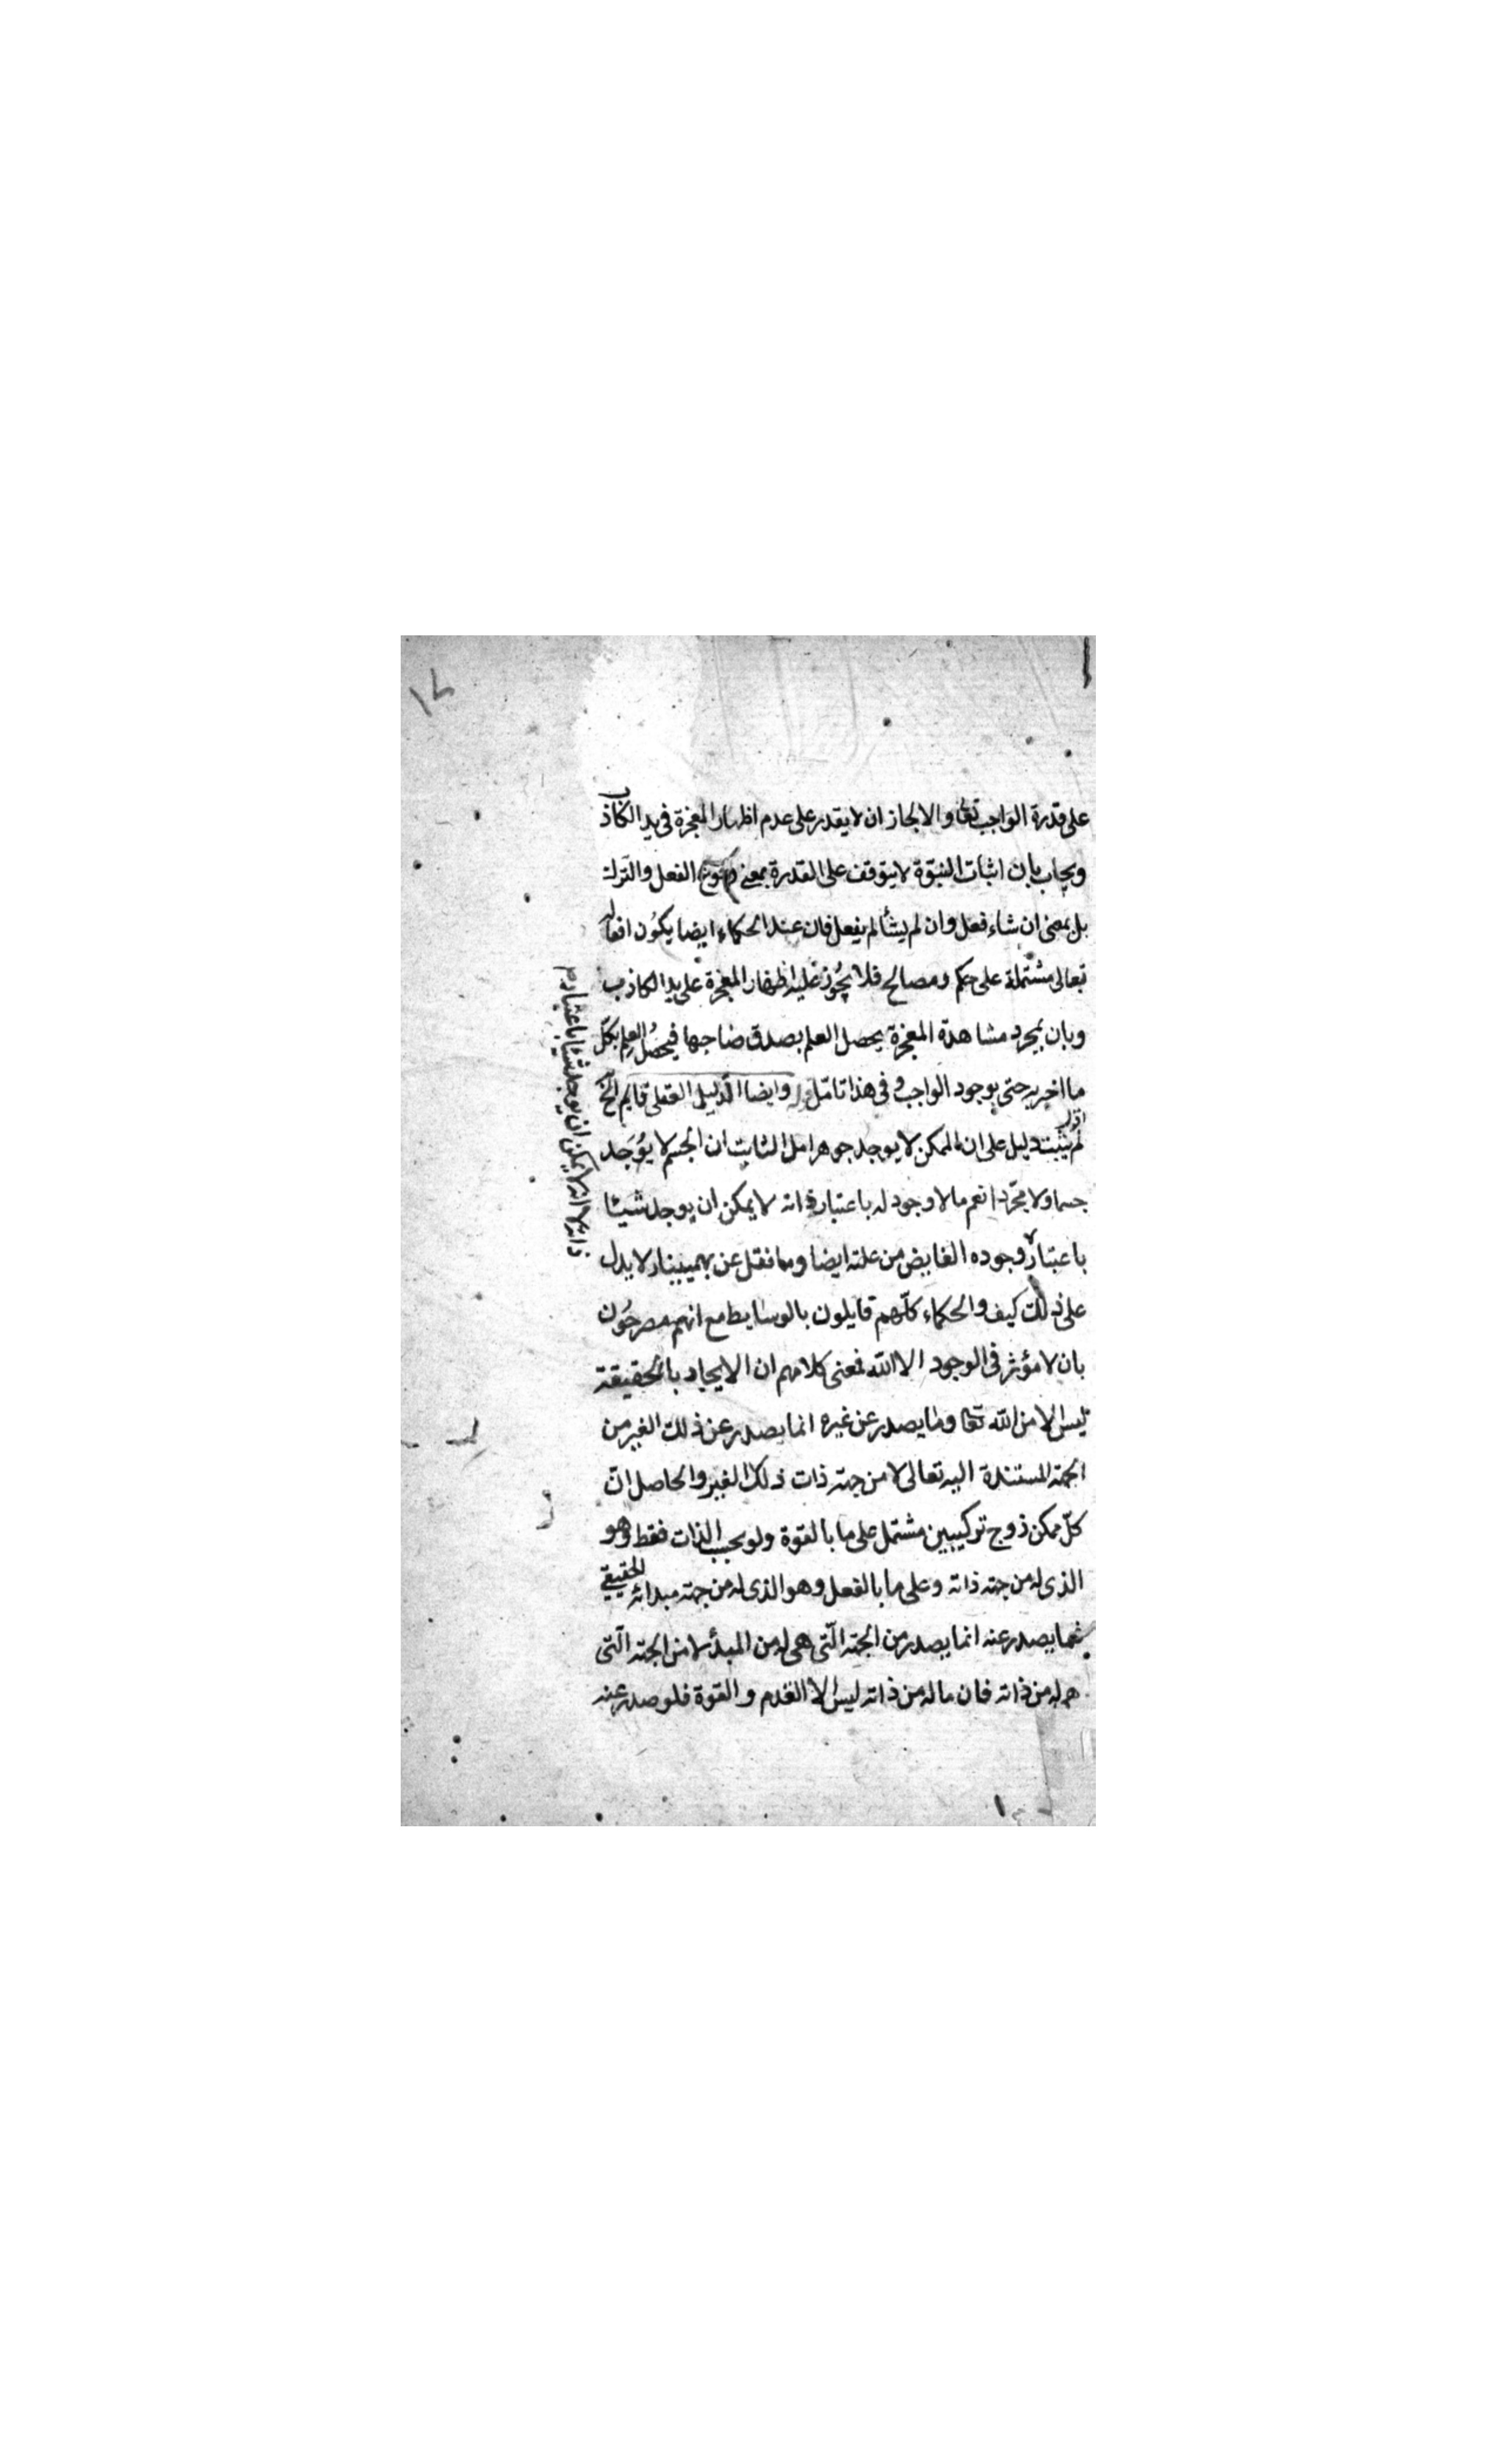 على قدرة الواجب تعا والا لجاز ان لا يقدر على عدم اظهار المعجزة فى يد الكاذب
ويجاب بان اثبات النبوّة لا يتوقف على القدرة بمعنى وقوع الفعل والترك
بل بمعنى ان شاء فعل وان لم يشأ لم يفعل فان عند الحكماء ايضا يكُون افعاله
تعالى مشتملة على حكم ومصالح فلا يجُوز عليه اظهار المعجزة على يد الكاذب
وبان بمجرد مشاهدة المعجزة يحصل العلم بصدق صاحبها فيحصُل العلم بكلّ
ما اخبر به حتى بوجود الواجب وفى هذا تامّل قوله وايضا الدّليل العقلى قايم الخ
اقول
لم يثبت دليل على ان الممكن لا يوجد جوهرا بل الثابت ان الجسم لا يُوجَد
جسما ولا مجرّدا نعم ما لا وجود له باعتبار ذاته لا يمكن ان يوجد شيئا
باعتبار وجوده الفايض من علته ايضا وما نقل عن بهمينيار لا يدل
على ذلك كيف والحكماء كلّهم قايلون بالوسايط مع انهم مصرحُون
بان لا مؤثر فى الوجود الا الله فمعنى كلامهم ان الايجاد بالحقيقة
ليس الا من الله تعا وما يصدر عن غيره انما يصدر عن ذلك الغير من
الجهة المستندة اليه تعالى لا من جهة ذات ذلك الغير والحاصل انّ
كلّ ممكن زوج تركيبين مشتمل على ما بالقوة ولو بحسب الذات فقط وهو
الذى له من جهة ذاته وعلى ما بالفعل وهو الذى له من جهة مبدائه الحقيقي
فما يصدر عنه انما يصدر من الجهة الّتى هى له من المبدأ لا من الجهة الّتى
هى له من ذاته فان ما له من ذاته ليس الا العدم والقوة فلو صدر عنه
ذاته لا انه لا يمكن ان يوجد شيئا باعتبار م